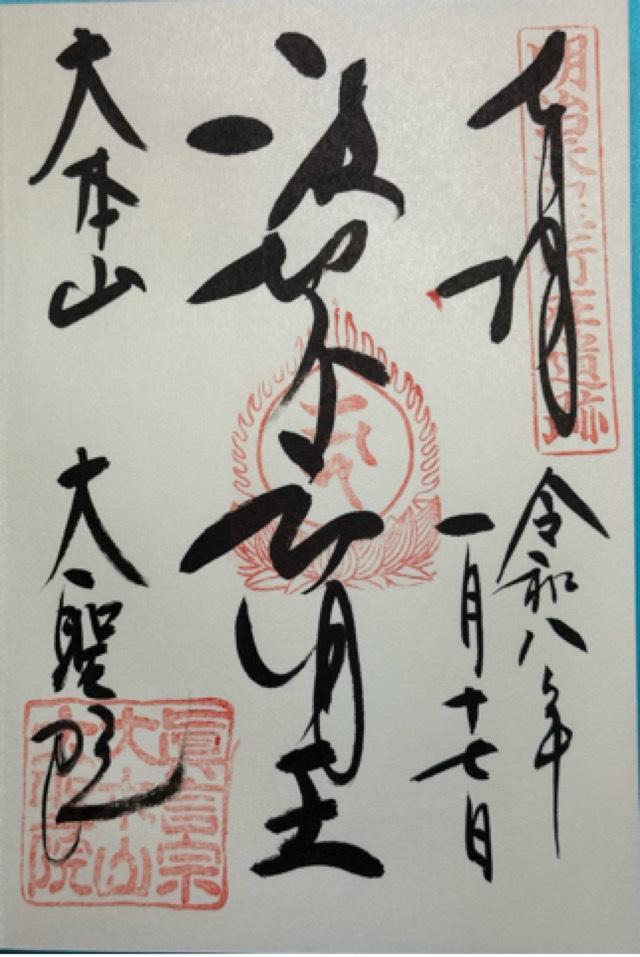 奉拝
令和八年
一月十七日
波切不動明王
大本山 大聖院
眞言宗
大本山
大聖院